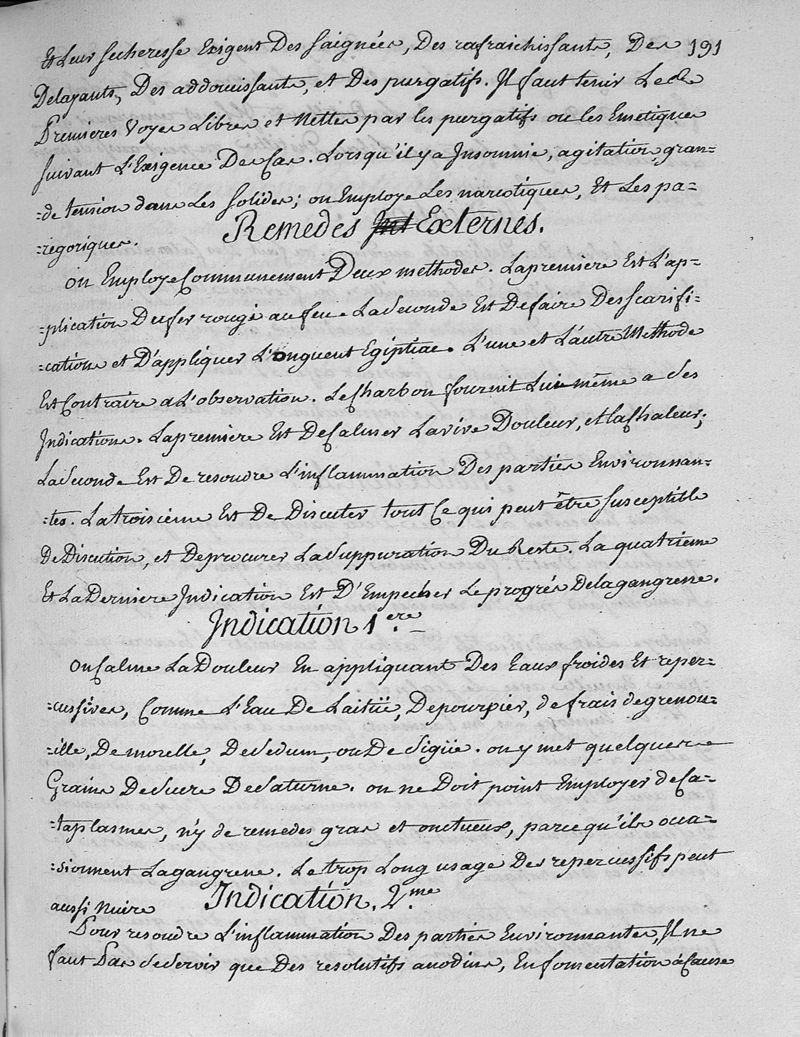 Et Leur secheresse Exigent Des saignées, Des rafraichissants, Des 191
Delayants, Des addoucissants, et Des purgatifs. Il faut tenir Les
Premieres Voyes Libres et Nettes par les purgatifs ou les Emetiques
suivant L'Exigence Des Cas. Lorsqu'il y a Insomnie, agitation, gran=
=de tension dans Les solides; on Employe Les narcotiques, Et Les pa=
=regoriques.
Remedes Int Externes.
on Employe Communement Deux methodes. La premiere Est L'ap=
=plication Du fer rougi au feu. La Seconde Est De faire Des scarifi=
=cations et D'appliquer L'onguent Egiptiac. L'une et L'autre Methode
Est Contraire a L'observation. Le Charbon fournit Lui même a des
Indications. La premiere Est De Calmer La vive Douleur, et La Chaleur;
La Seconde Est De resoudre L'inflammation Des parties Environnan=
=tes. La troisieme Est De Discuter tout Ce qui peut être susceptible
De Discution, et De procurer La Suppuration Du Reste. La quatrieme
Et La Derniere Indication Est D'Empecher Le progrés De la gangrene.
Indication 1.ere
on Calme La Douleur En appliquant Des Eaux froides Et reper=
=cussives, Comme L'Eau De Laitüe, De pourpier, de frais de grenou=
=ille, De morelle, De Sedum, ou De Sigüe. on y met quelques
Grains De Sucre De Saturne. on ne Doit point Employer de Ca=
=taplasmes, n'y de remedes gras et onctueux, parce qu'ils occa=
=sionnent La gangrene. Le trop Long usage Des repercussifs peut
aussi Nuire
Indication. 2.me
Pour resoudre L'inflammation Des parties Environnantes, Il ne
faut Pas Se Servir que Des resolutifs anodins, En fomentation à Cause